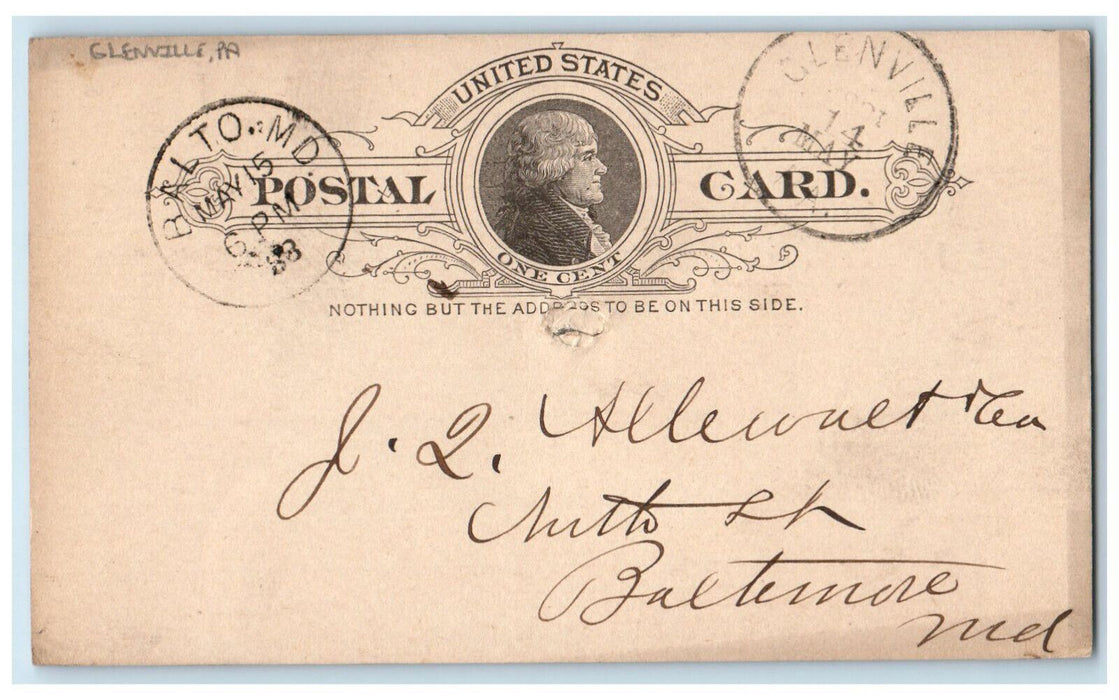 GLENVILLE, PA
UNITED STATES
POSTAL CARD.
ONE CENT
NOTHING BUT THE ADDRESS TO BE ON THIS SIDE.
BALTO. MD
MAY 15
6 PM
88
GLENVILLE
14
MAY
J. Q. Allewalt & Co
St
Baltimore
Md